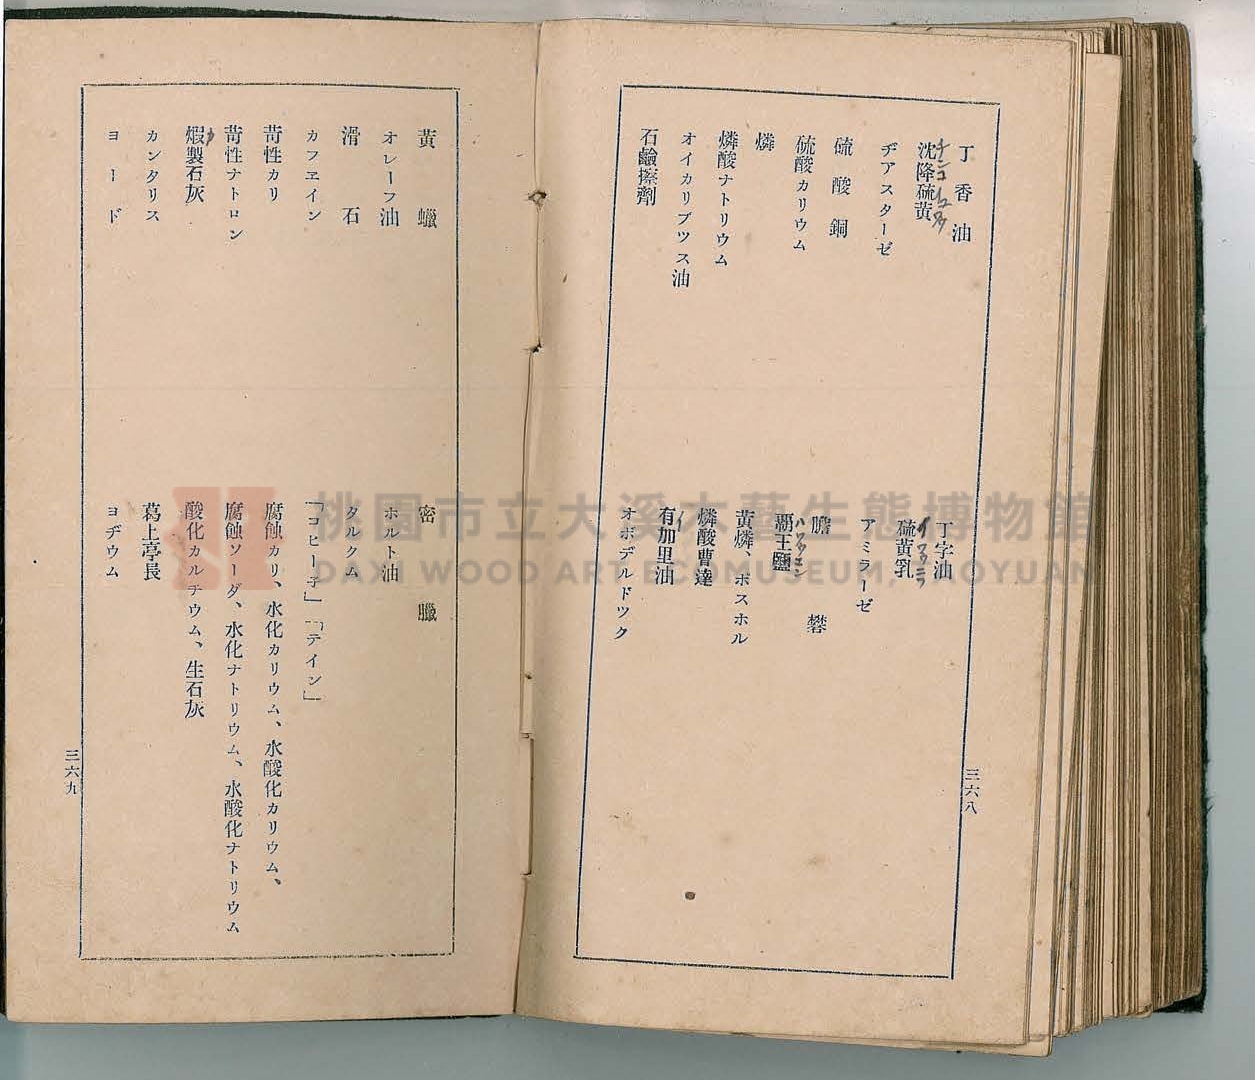 丁香油　丁字油
沈降硫黄　硫黄乳
ヂアスターゼ　アミラーゼ
硫酸銅　膽礬
硫酸カリウム　覇王鹽
燐　黃燐、ボスホル
燐酸ナトリウム　燐酸曹達
オイカリプツス油　有加里油
石鹼擦劑　オボデルドツク
三六八
黃蠟　密臘
オレーフ油　ホルト油
滑石　タルクム
カフエイン　「コヒーネ」「テイン」
苛性カリ　腐蝕カリ、水化カリウム、水酸化カリウム、
苛性ナトロン　腐蝕ソーダ、水化ナトリウム、水酸化ナトリウム
煆製石灰　酸化カルチウム、生石灰
カンタリス　葛上亭長
ヨード　ヨヂウム
三六九
桃園市立大溪木藝生態博物館
DAXI WOOD ART ECOMUSEUM, TAOYUAN